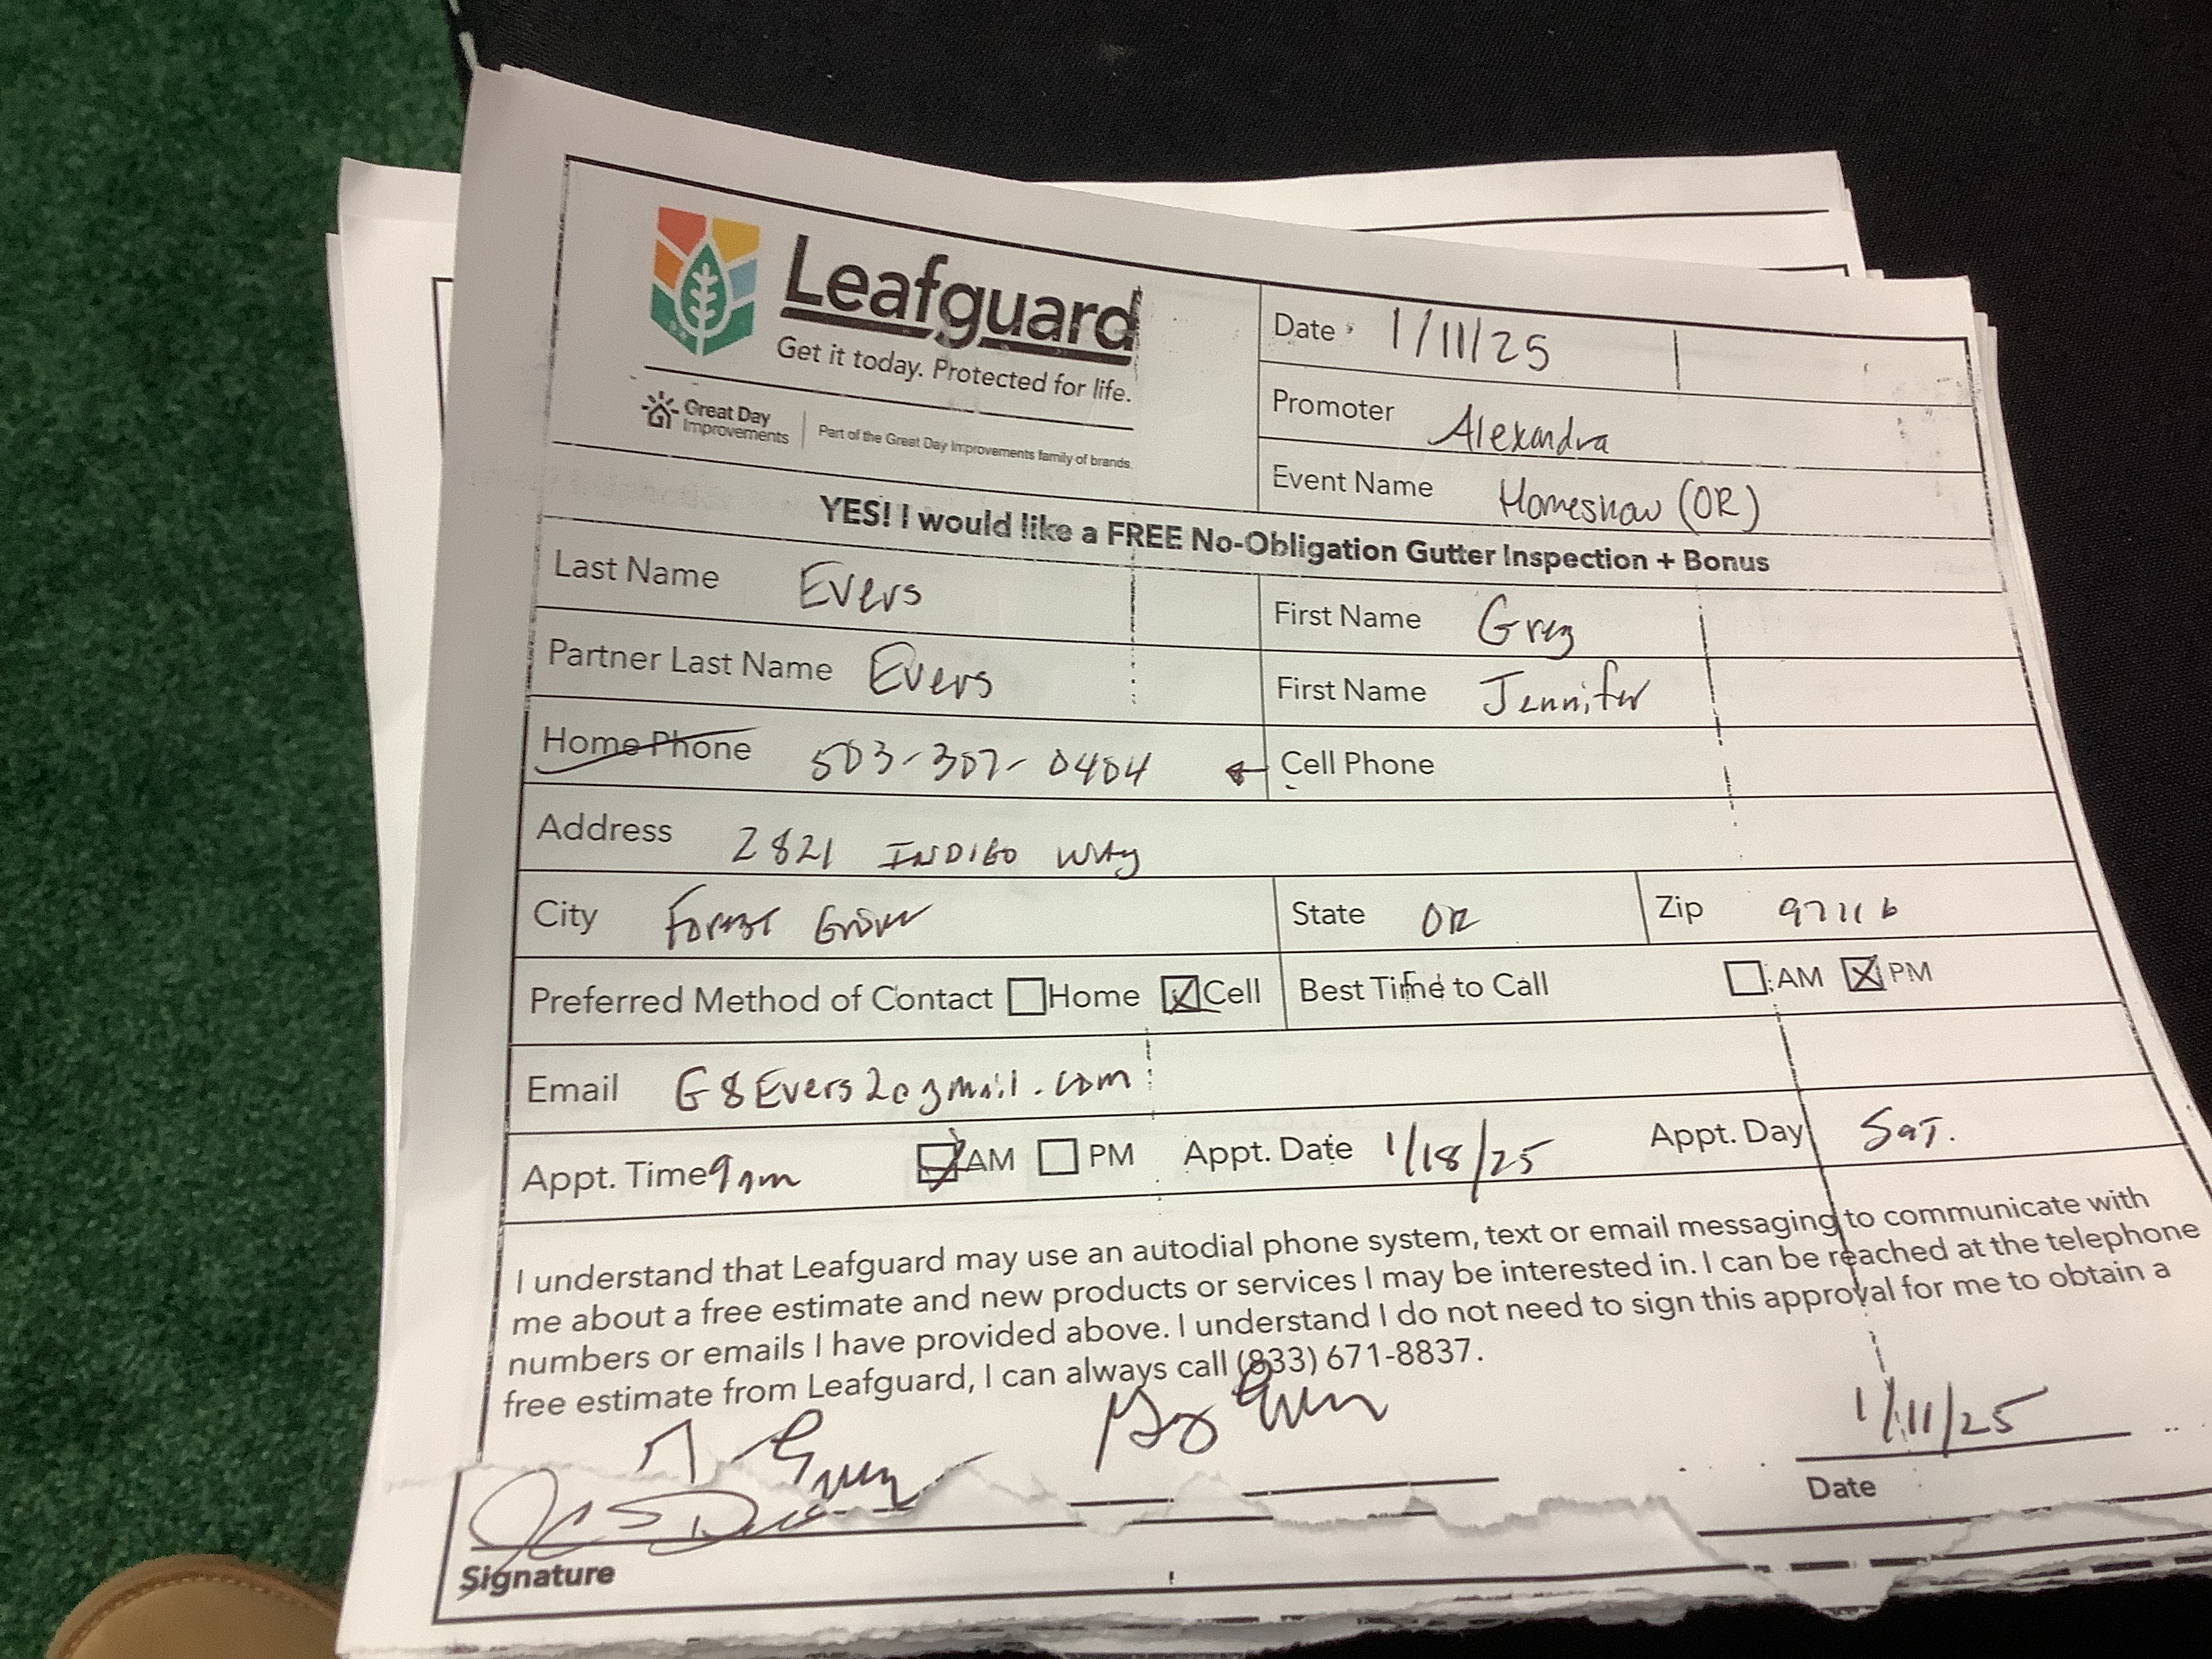 Leafguard
Get it today. Protected for life.
Great Day
Improvements
Part of the Great Day Improvements family of brands.
Date 1/11/25
Promoter Alexandra
Event Name Homeshow (OR)
YES! I would like a FREE No-Obligation Gutter Inspection + Bonus
Last Name Evers First Name Greg
Partner Last Name Evers First Name Jennifer
Home Phone 503-307-0404 ← Cell Phone
Address 2821 INDIGO WAy
City Forest Grove State OR Zip 97116
Preferred Method of Contact Home Cell Best Time to Call AM PM
Email G8Evers2@gmail.com
Appt. Time 9am AM PM Appt. Date 1/18/25 Appt. Day SaT.
I understand that Leafguard may use an autodial phone system, text or email messaging to communicate with
me about a free estimate and new products or services I may be interested in. I can be reached at the telephone
numbers or emails I have provided above. I understand I do not need to sign this approval for me to obtain a
free estimate from Leafguard, I can always call (833) 671-8837.
1/11/25
Date
Signature